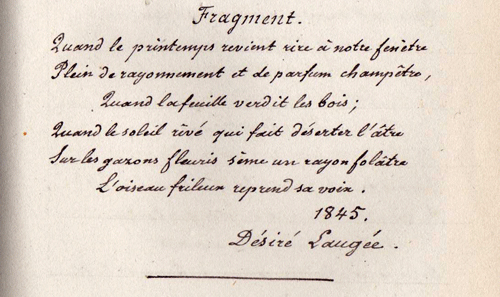 Fragment.
Quand le printemps revient rire à notre fenêtre
Plein de rayonnement et de parfum champêtre,
Quand la feuille verdit les bois ;
Quand le soleil rêvé qui fait déserter l'âtre
Sur les gazons fleuris sème un rayon folâtre
L'oiseau frileux reprend sa voix.
1845.
Désiré Laugée.